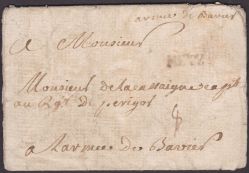 armée de Baviere
A Monsieur
Monsieur de la cassaigne capit
au Rgt de perigor
a Larmée de Baviere